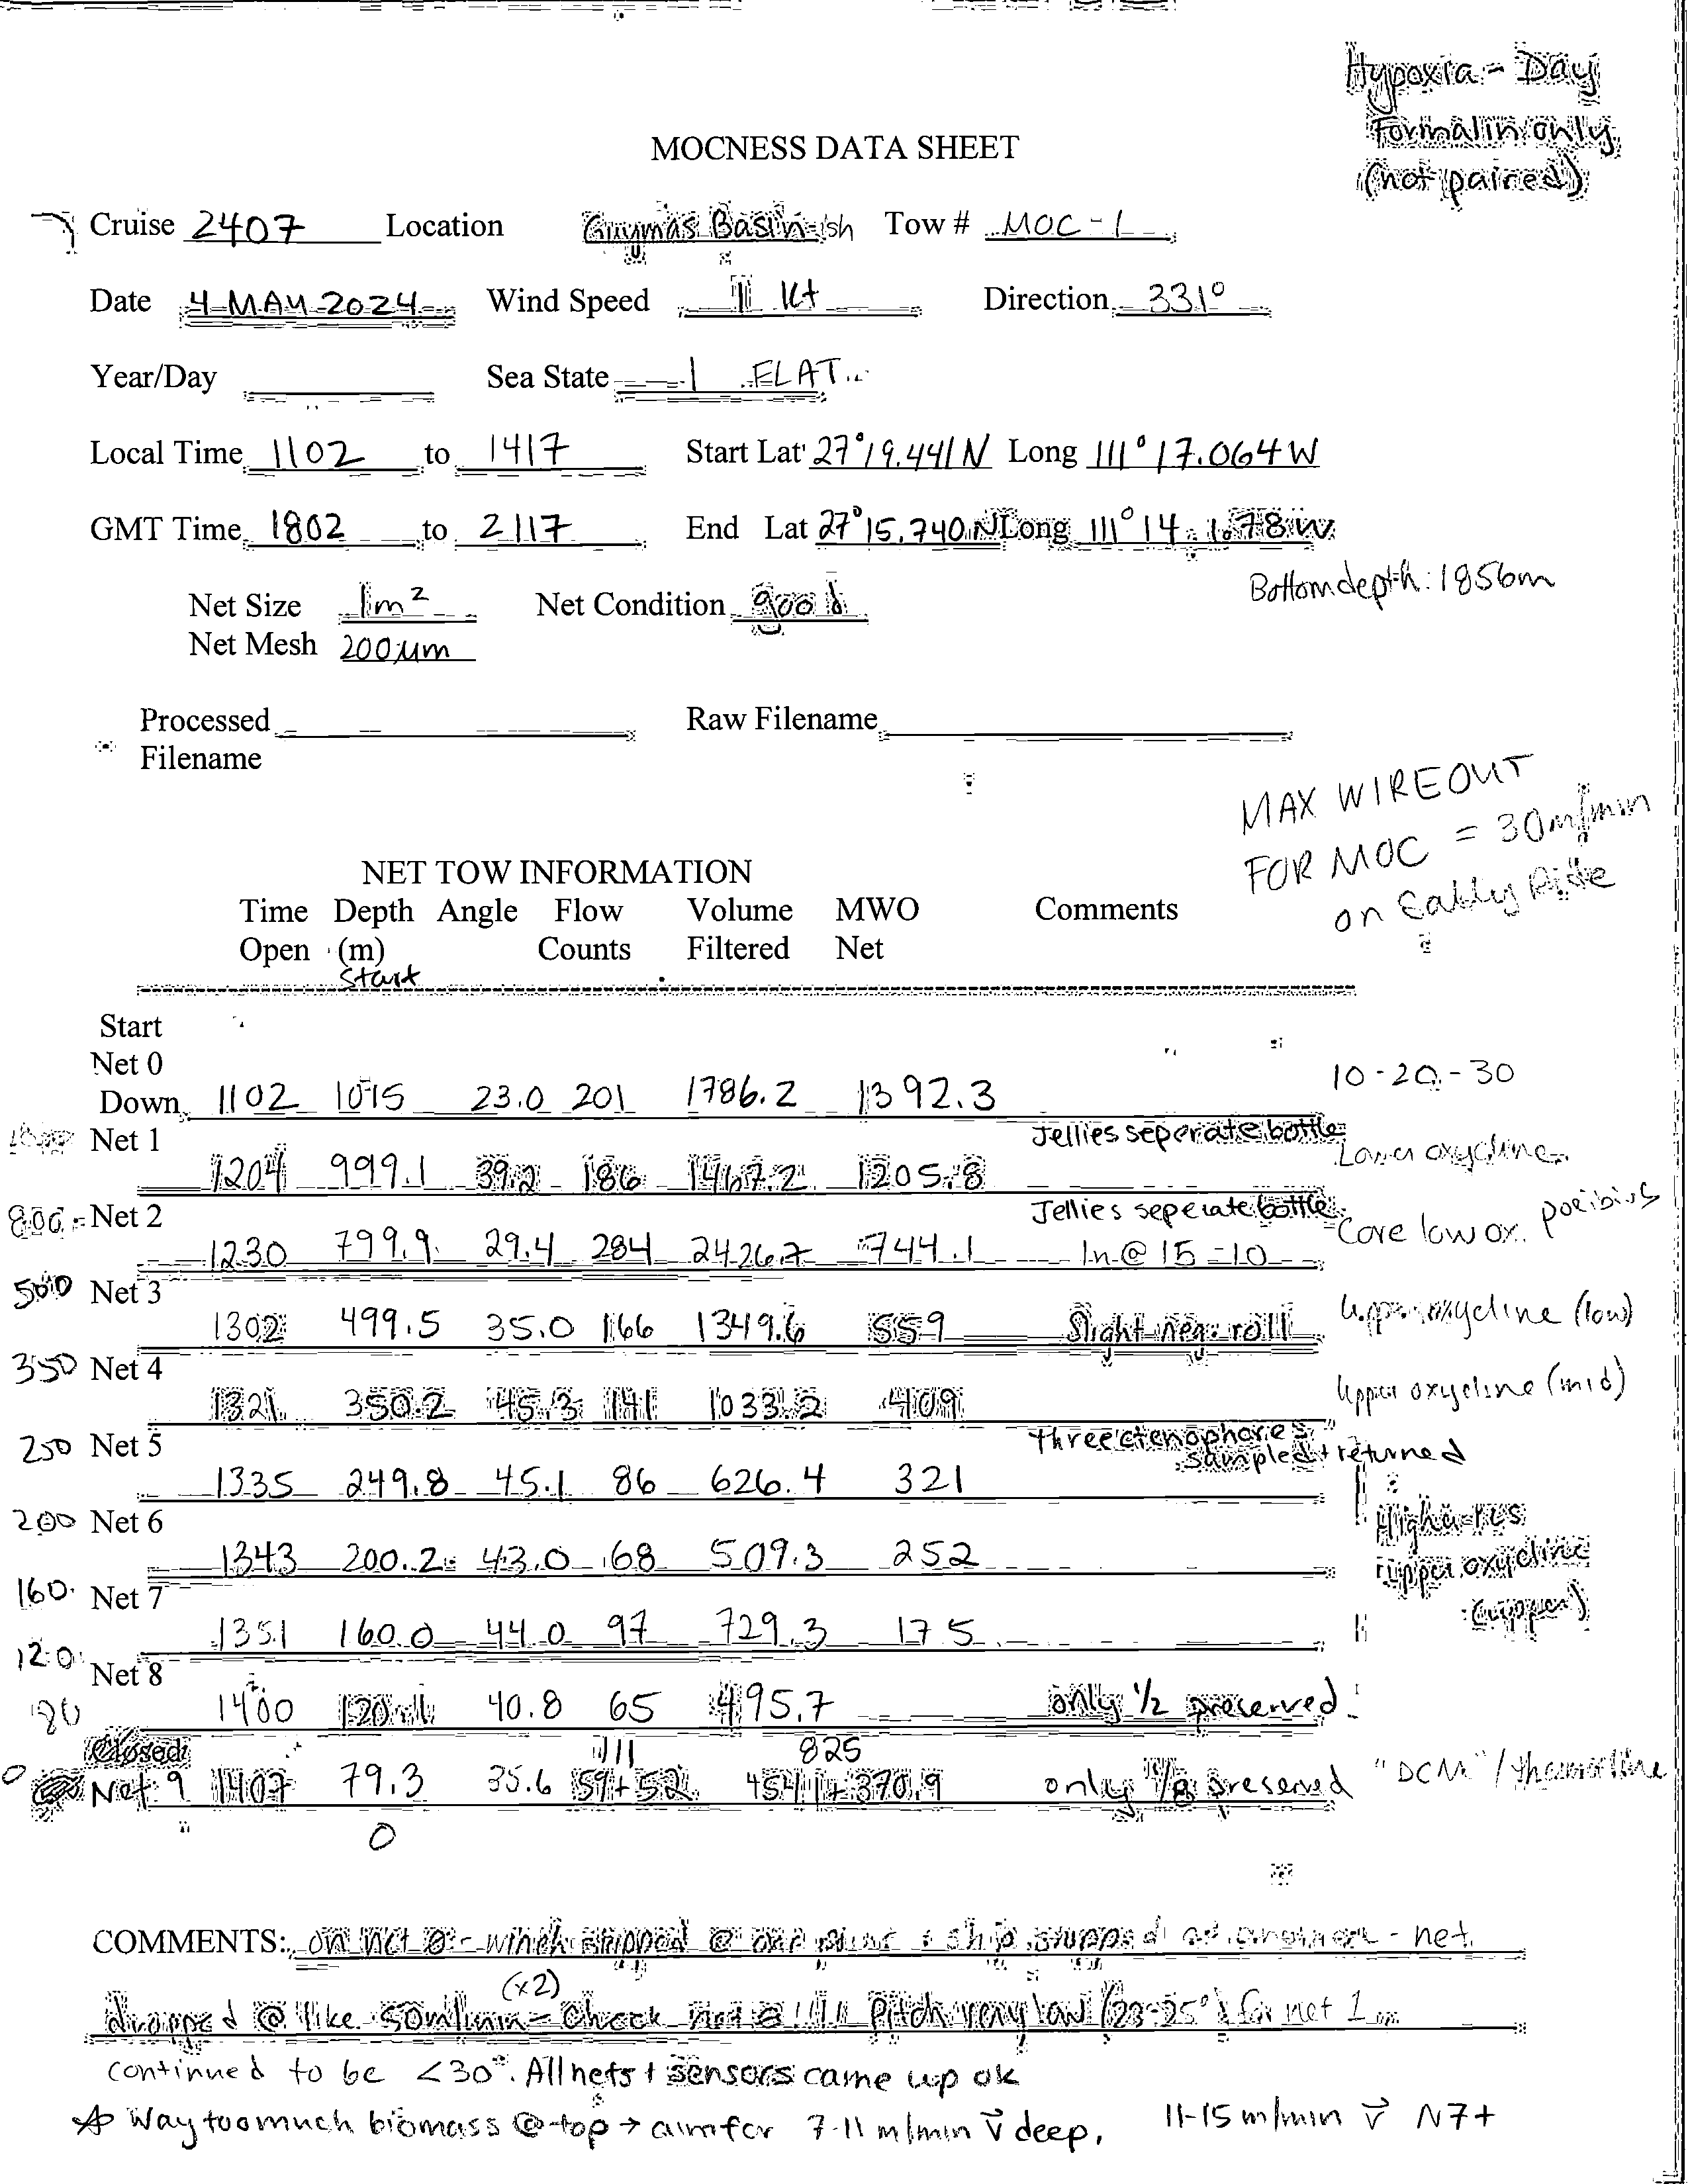 Hypoxia - Day
Formalin only
(not paired)
MOCNESS DATA SHEET
Cruise 2407 Location Guymas Basin-ish Tow # MOC-1
Date 4 MAY 2024 Wind Speed 11 kt Direction 331°
Year/Day Sea State 1 FLAT
Local Time 1102 to 1417 Start Lat 27°19.441N Long 111°17.064W
GMT Time 1802 to 2117 End Lat 27°15.740N Long 111°14.178W
Bottom depth: 1856m
Net Size 1m² Net Condition good
Net Mesh 200µm
Processed Raw Filename
Filename
MAX WIREOUT
FOR MOC = 30m/min
on Sally Ride
NET TOW INFORMATION
Time Depth Angle Flow Volume MWO Comments
Open (m) Counts Filtered Net
Start
Start
Net 0
Down 1102 1015 23.0 201 1786.2 1392.3 10-20-30
Net 1 Jellies seperate bottle
1204 999.1 39.2 186 1467.2 1205.8 Lower oxycline
800 Net 2 Jellies seperate bottle
1230 799.9 29.4 284 2426.7 744.1 In @ 15-10 Core low ox.
500 Net 3
1302 499.5 35.0 166 1349.6 559 Slight neg. roll Upper oxycline (low)
350 Net 4
1321 350.2 45.3 141 1033.2 409 Upper oxycline (mid)
250 Net 5 three ctenophores
sampled + returned
1335 249.8 45.1 86 626.4 321
200 Net 6
1343 200.2 43.0 68 509.3 252
Higher-res
upper oxycline
(upper)
160 Net 7
1351 160.0 44.0 97 729.3 175
120 Net 8
1400 120.1 40.8 65 495.7 only 1/2 preserved
80
Closed 111 825
0 Net 9 1407 79.3 35.6 59+52 454.1+370.9 only 1/8 preserved "DCM"/thermocline
0
COMMENTS: on net 0 - winch stopped @ one point + ship stopped at another - net
(x2)
dropped @ like 50m/min - Check net 0!!!! Pitch very low (23-25°) for net 1
continued to be <30°. All nets + sensors came up ok
Way too much biomass @ top → aim for 7-11 m/min v̄ deep, 11-15 m/min v̄ N7+